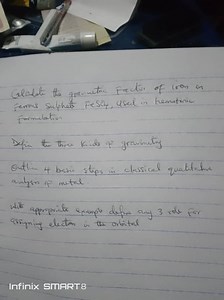 Calculate the gravimetric Factor of iron in
ferrous sulphate FeSO4 used in hematinic
formulation
Define the three kinds of gravimetry
Outline 4 basic steps in classical qualitative
analysis of metal
With appropriate example define any 3 rule for
assigning electron in the orbital
Infinix SMART 8